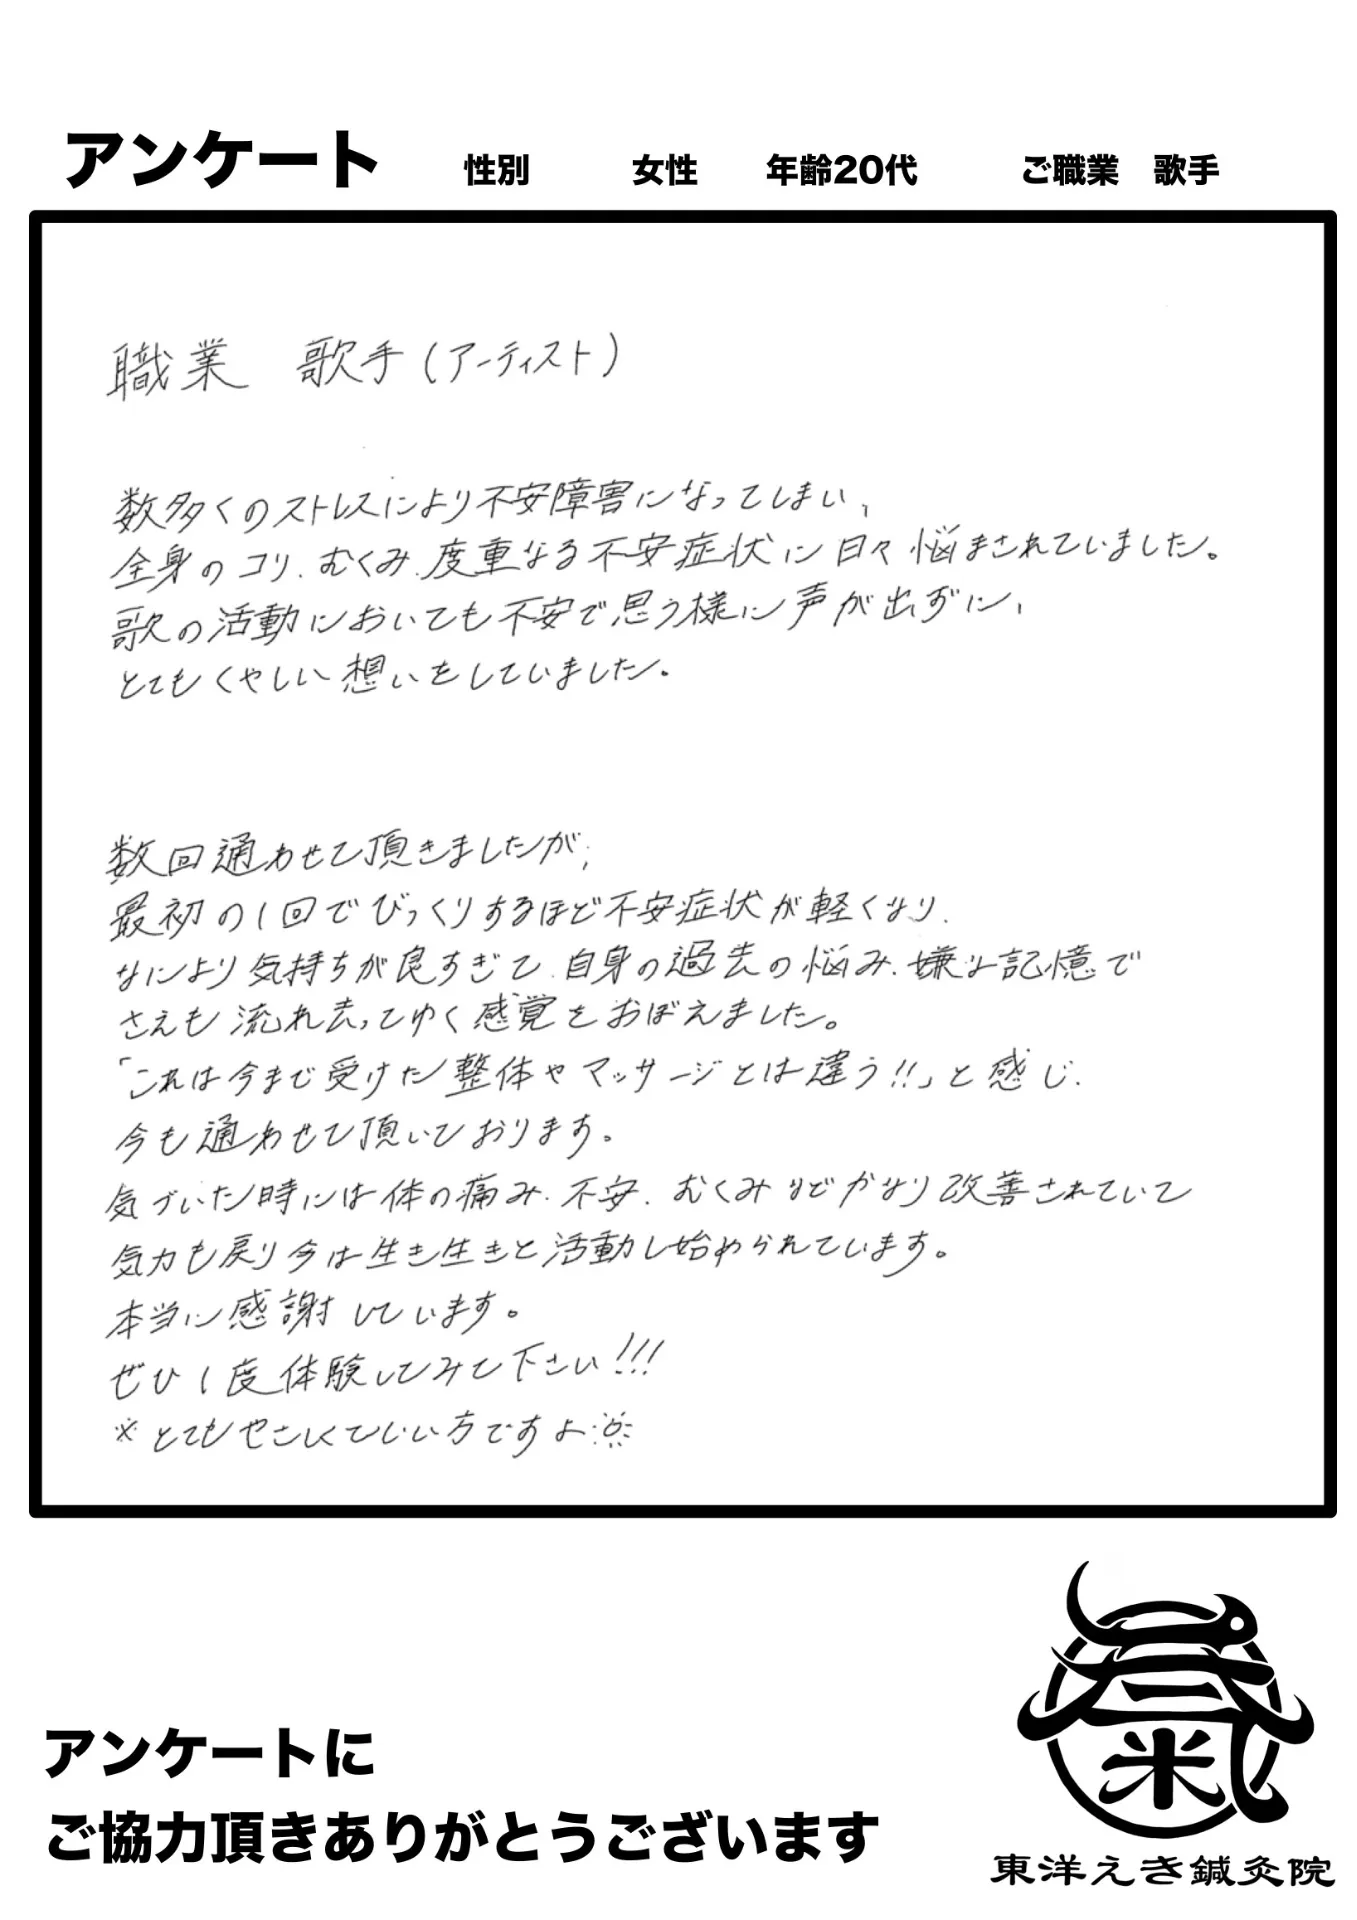 アンケート 性別 女性 年齢20代 ご職業 歌手
職業 歌手(アーティスト)
数多くのストレスにより不安障害になってしまい、
全身のコリ、むくみ、度重なる不安症状に日々悩まされていました。
歌の活動においても不安で思う様に声が出ずに、
とてもくやしい想いをしていました。
数回通わせて頂きましたが、
最初の1回でびっくりするほど不安症状が軽くなり、
なにより気持ちが良すぎて、自身の過去の悩み、嫌な記憶で
さえも流れ去ってゆく感覚をおぼえました。
「これは今まで受けた整体やマッサージとは違う!!」と感じ、
今も通わせて頂いております。
気づいた時には体の痛み、不安、むくみなどかなり改善されていて
気力も戻り今は生き生きと活動し始められています。
本当に感謝しています。
ぜひ1度体験してみて下さい!!!
※とてもやさしくていい方ですよ
アンケートに
ご協力頂きありがとうございます
氣
東洋えき鍼灸院